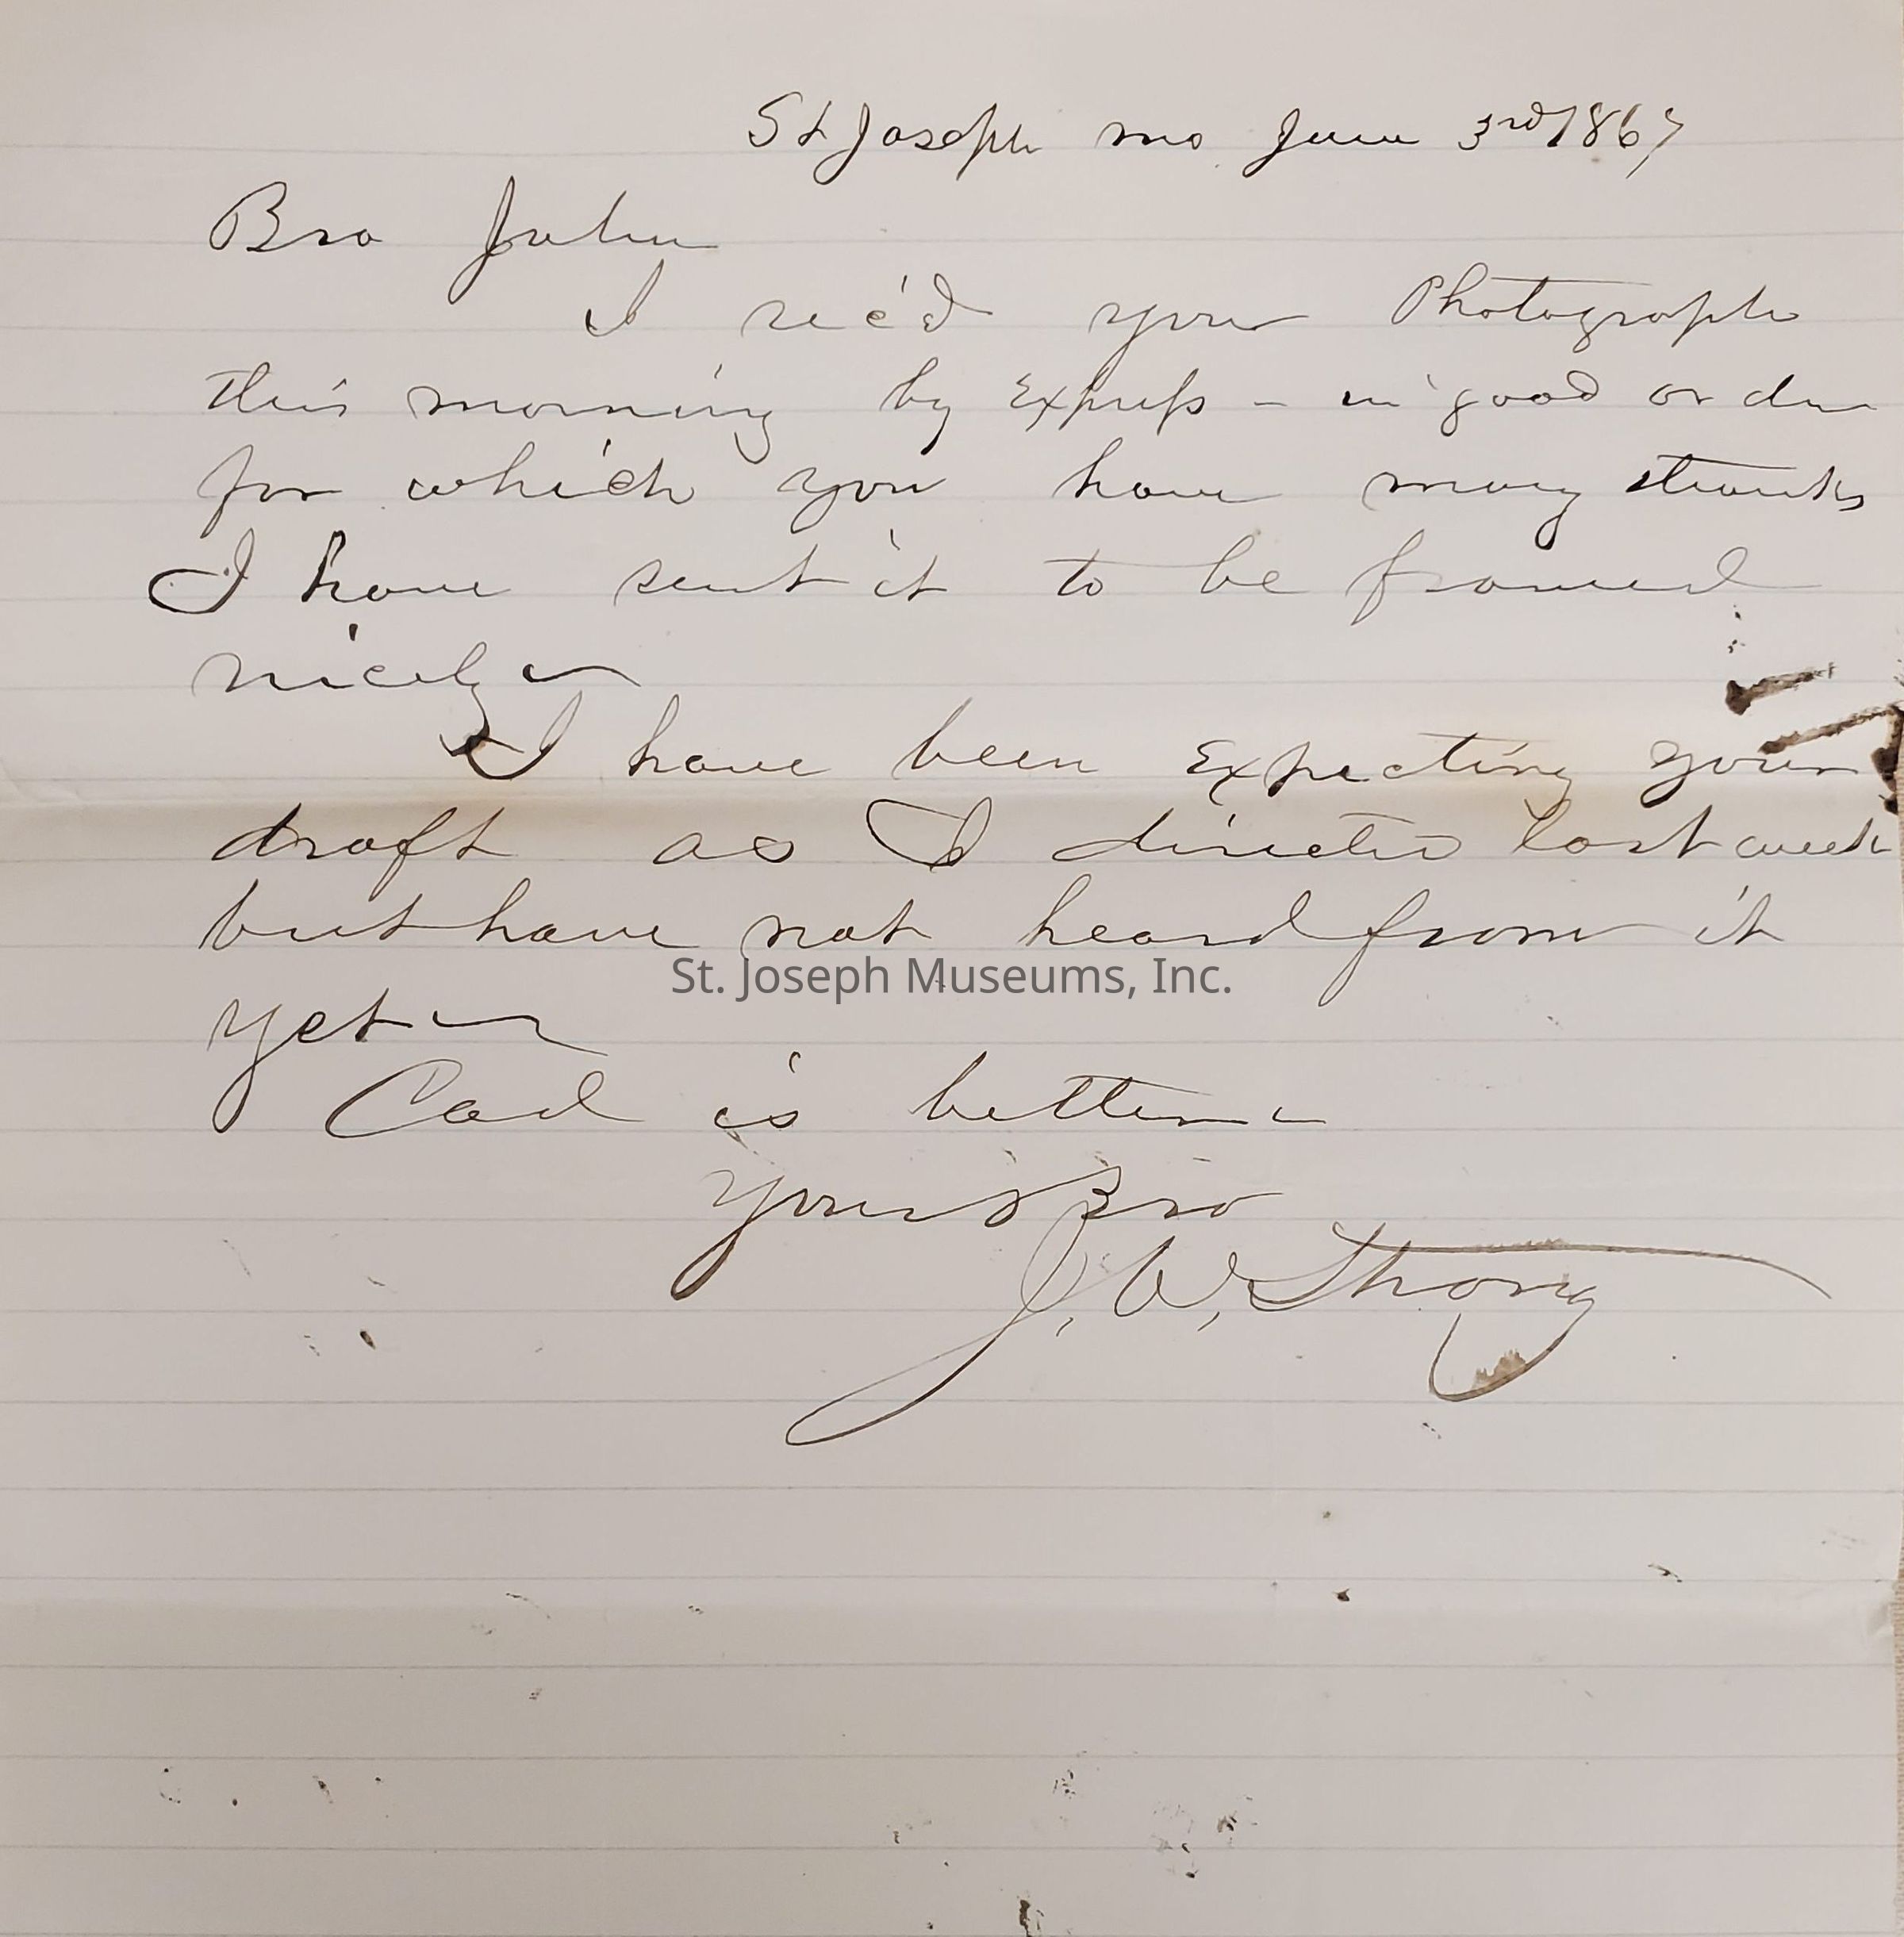 St Joseph Mo. June 3rd 1867
Bro John
I rec'd your Photograph
this morning by Express - in good order
for which you have many thanks
I have sent it to be framed
nicely
I have been Expecting your
draft as I directed last week
but have not heard from it
St. Joseph Museums, Inc.
yet
is better
Yours Bro
J. W. Strong